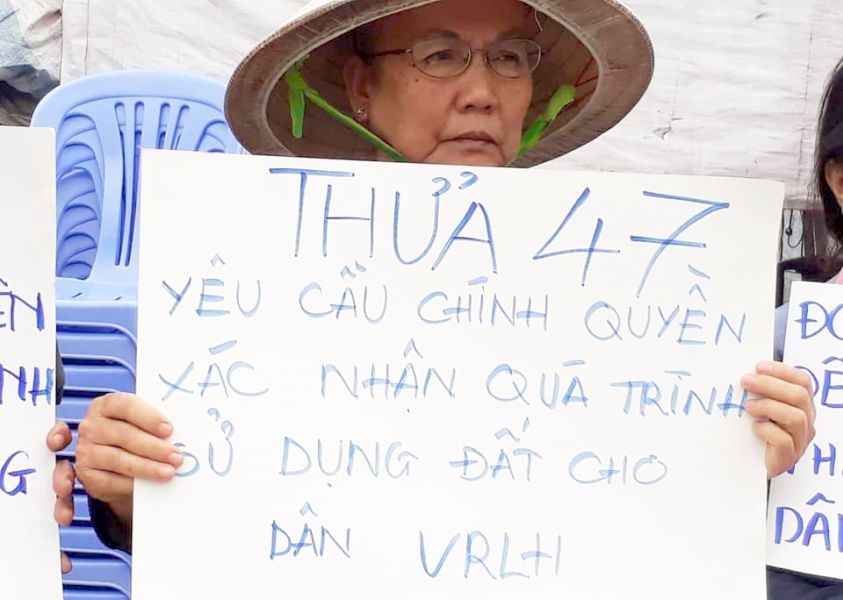 THỬA 47
YÊU CẦU CHÍNH QUYỀN
XÁC NHẬN QUÁ TRÌNH
SỬ DỤNG ĐẤT CHO
DÂN VRLH